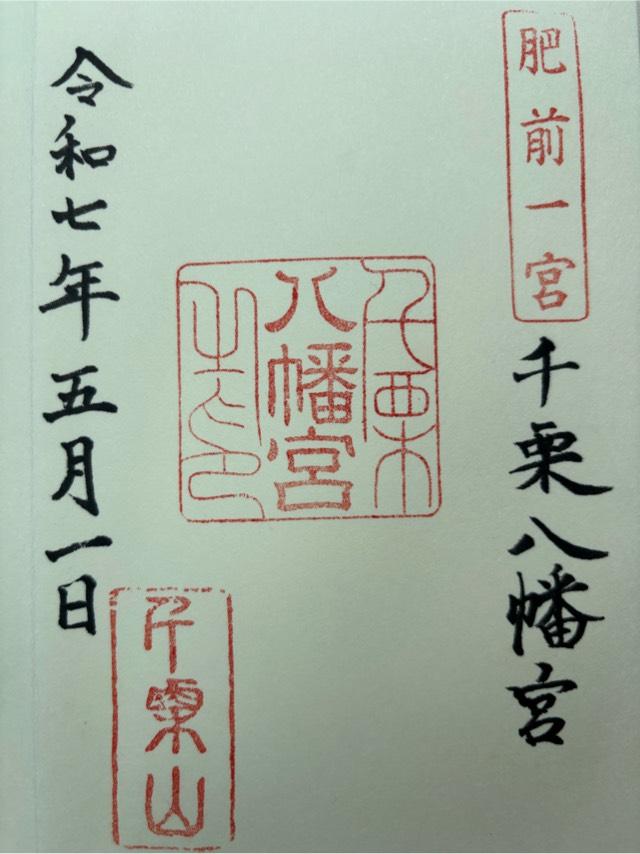 肥前一宮
千栗八幡宮
千栗
八幡宮
之印
令和七年五月一日
千栗山